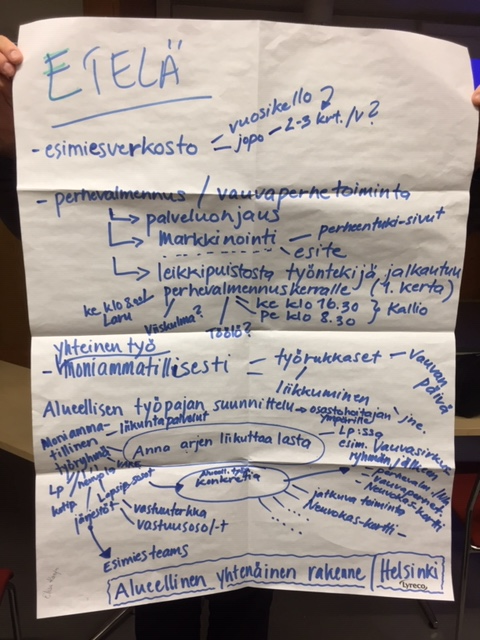 ETELÄ
- esimiesverkosto
vuosikello ?
jopo - 2-3 krt./v ?
- perhevalmennus / vauvaperhetoiminta
palveluohjaus
Markkinointi - perheentuki-sivut
esite
leikkipuistosta työntekijä jalkautuu
perhevalmennuskerralle (1. kerta)
ke klo
Laru
Viiskulma?
Töölö?
ke klo 16.30
pe klo 8.30
Kallio
yhteinen työ
- Moniammatillisesti
työrukkaset - Vauvan päivä
liikkuminen
jne.
Alueellisen työpajan suunnittelu → osastohoitajan
ympärille
Moniamma-
tillinen
työryhmä
liikuntapalvelut
Anna arjen liikuttaa lasta
LP:ssa
esim. Vauvasirkus
LP
kotip.
järjestöt
Lapsip.
vastuuterkka
vastuusos/-t
konkretia
jatkuva toiminta
Neuvokas-kortti
Neuvokas-kortti -
Esimiesteams
Alueellinen yhtenäinen rakenne / Helsinki
Lyreco